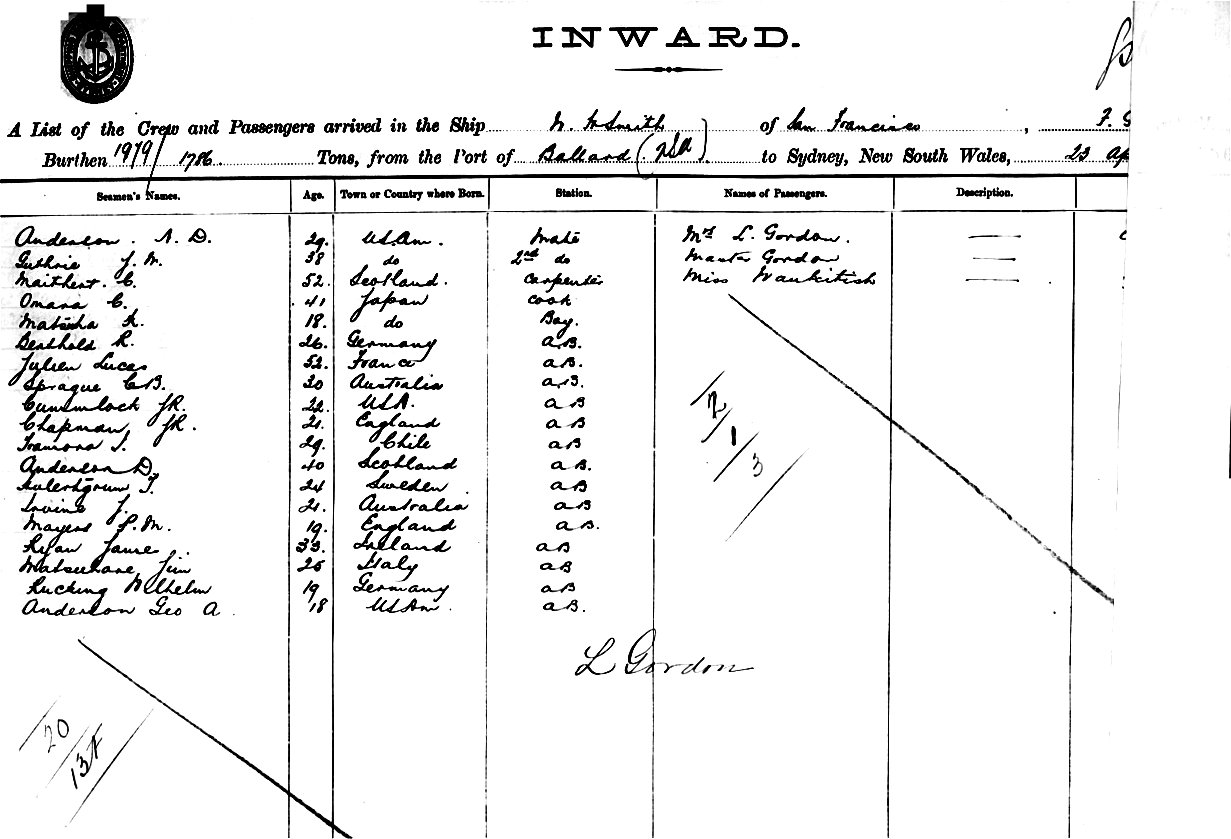 INWARD.
A List of the Crew and Passengers arrived in the Ship W. H Smith of San Francisco ,
Burthen 1979/1786 Tons, from the Port of Ballard (USA) to Sydney, New South Wales, 23 Ap
Seamen's Names. Age. Town or Country where Born. Station. Names of Passengers. Description.
Anderson. A. D. 29. US.Am. Mate Mrs L. Gordon.
Guthrie J. M. 38 do 2nd do Master Gordon
C. 52. Scotland. Carpenter Miss
Omara C. 41 Japan Cook
K. 18. do Boy.
Berthold R. 26. Germany a.B.
Julien Lucas 52. France a.B.
Sprague C B. 30 Australia a.B.
JR. 22. USA. a B
Chapman JR. 21. England a B
29. Chile a B
Anderson D. 40 Scotland a B.
24 Sweden a B
Irvine J. 21. Australia a B
Mayers P. M. 19. England a B.
Ryan James 33. Ireland a B
Jim 25 Italy a B
Rucking Wilhelm 19 Germany a B
Anderson Geo A. 18 US Am. a B.
2/1/3
L Gordon
20/